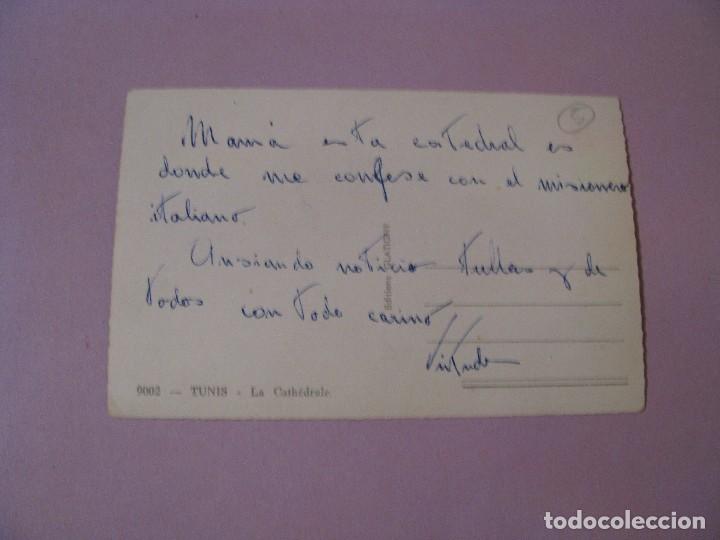 5
Mamá esta catedral es
donde me confese con el misionero
italiano.
Ansiando noticia tullas y de
todos con todo cariño
Editions
9002 — TUNIS - La Cathédrale
todocoleccion
todocoleccion.net